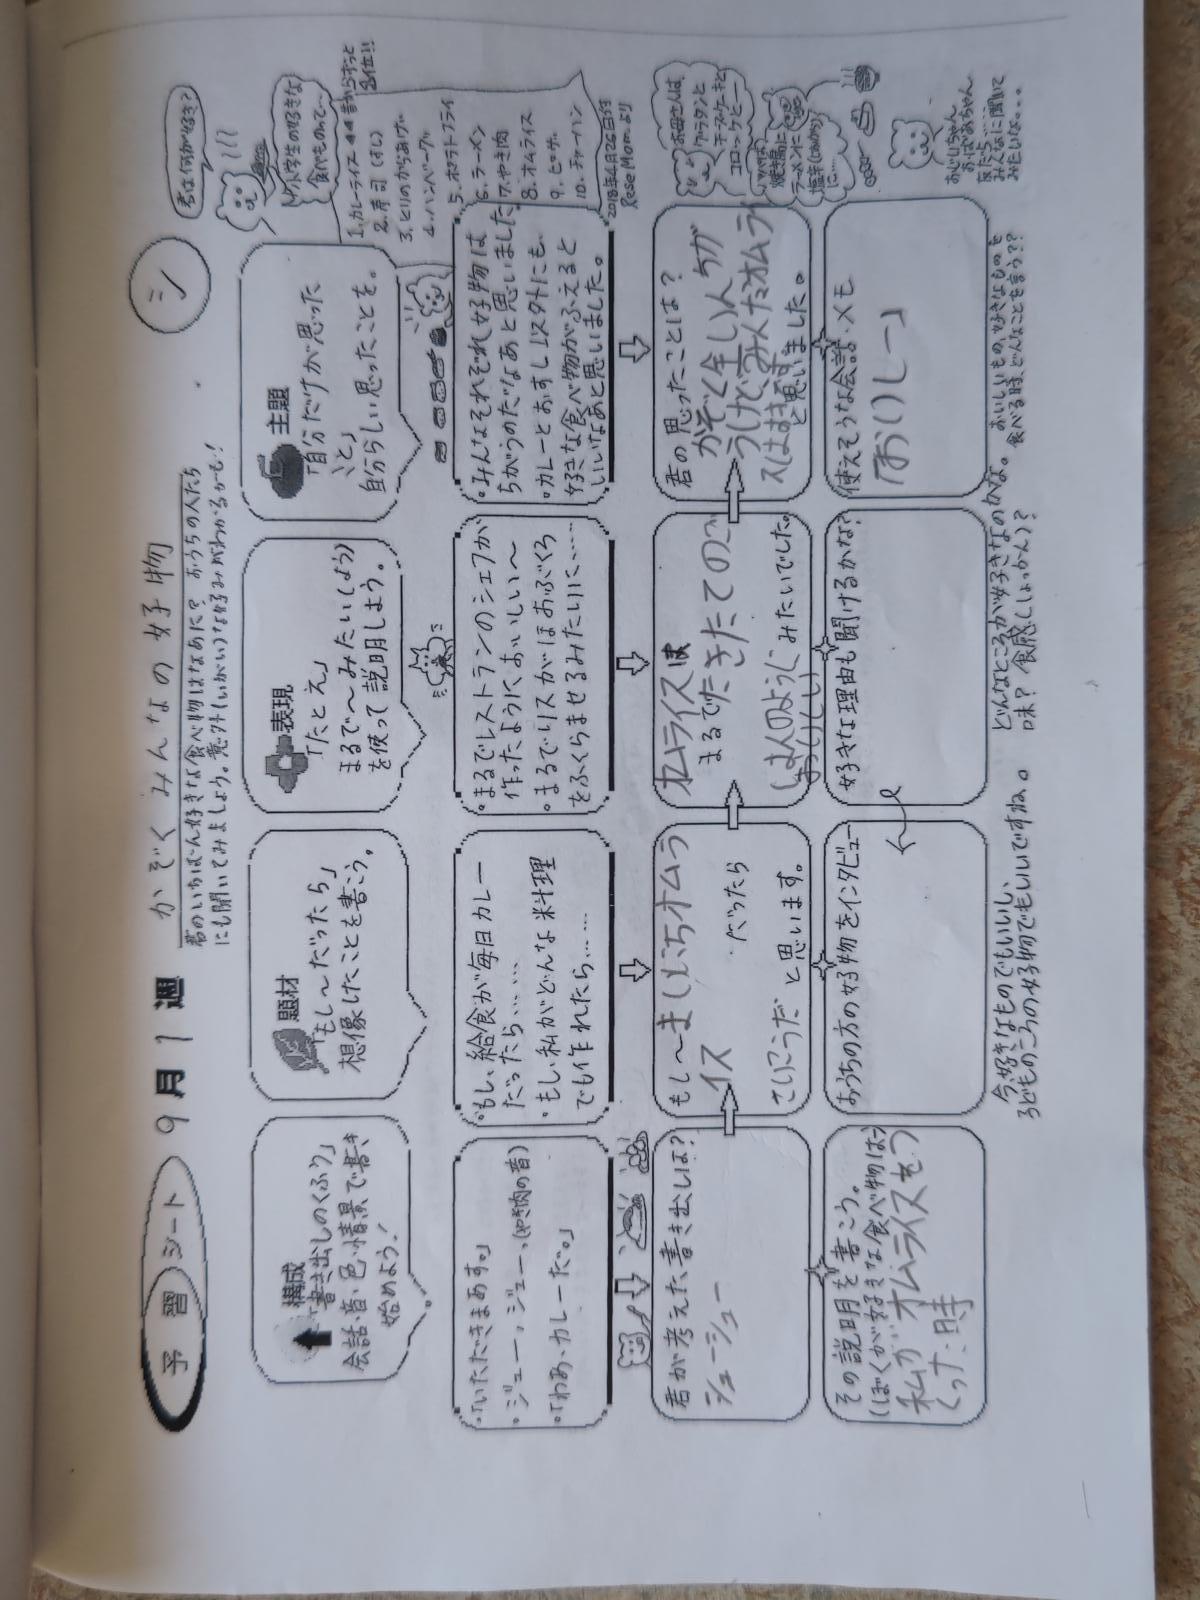 予習シート 9月1週 かぞくみんなの好物
シ
君のいちばん好きな食べ物はなあに? おうちの人たち
にも聞いてみましょう。意外(いがい)な好みがわかるかも!
君は何が好き?
小学生の好きな
食べものて〜
1. カレーライス 昔からずっと
1位!!
2. 寿司(すし)
3. とりのからあげ
4. ハンバーグ
5. ポテトフライ
6. ラーメン
7. やき肉
8. オムライス
9. ピザ
10. チャーハン
2018年4月26日付
Rese Momより
構成
「書き出しのくふう」
会話・音・色・情景で書き
始めよう!
題材
「もし〜だったら」
想像したことを書こう。
表現
「たとえ」
まるで〜みたい(しよう)
を使って説明しよう。
主題
「自分だけが思った
こと」
自分らしい思ったことを。
・「いただきまあす。」
・ジュー、ジュー、(やき肉の音)
・「わあ、カレーだ。」
・もし、給食が毎日カレー
だったら……
・もし、私がどんな料理
でも作れたら……
・まるでレストランのシェフが
作ったように、おいしい〜
・まるでリスがほおぶくろ
をふくらませるみたいに……
・みんなそれぞれ好物は
ちがうのだなあと思いました
・カレーとおすし以外にも、
好きな食べ物がふえると
いいなあと思いました。
君が考えた書き出しは?
ジュージュー
もし〜まいにちオムラ
イス だったら
さいこうだ と思います。
オムライスは
まるでたきたてのご
はんのように みたいでした。
おいしい
君の思ったことは?
かぞく全いんちが
うけど、みんなオムライ
スはおすき
と思いました。
お母さんは、
グラタンと
チーズケーキと
コロッケとー
パパは
焼き鳥に
ラーメンに
塩辛(しおから)
に…
おじいちゃん
おばあちゃん
友だち…
みんなに聞いて
みたいな…
その説明を書こう。
(ぼくが好きな食べ物は)
私がオムライスをつ
くった時
おうちの方の好物をインタビュー
好きな理由も聞けるかな?
使えそうな会話・メモ
「おいしー」
今、好きなものでもいいし、
子どものころの好物でもいいですね。
どんなところが好きなのかな。
味? 食感(しょっかん)?
おいしいもの、好きなものを
食べる時、どんなことを言う??